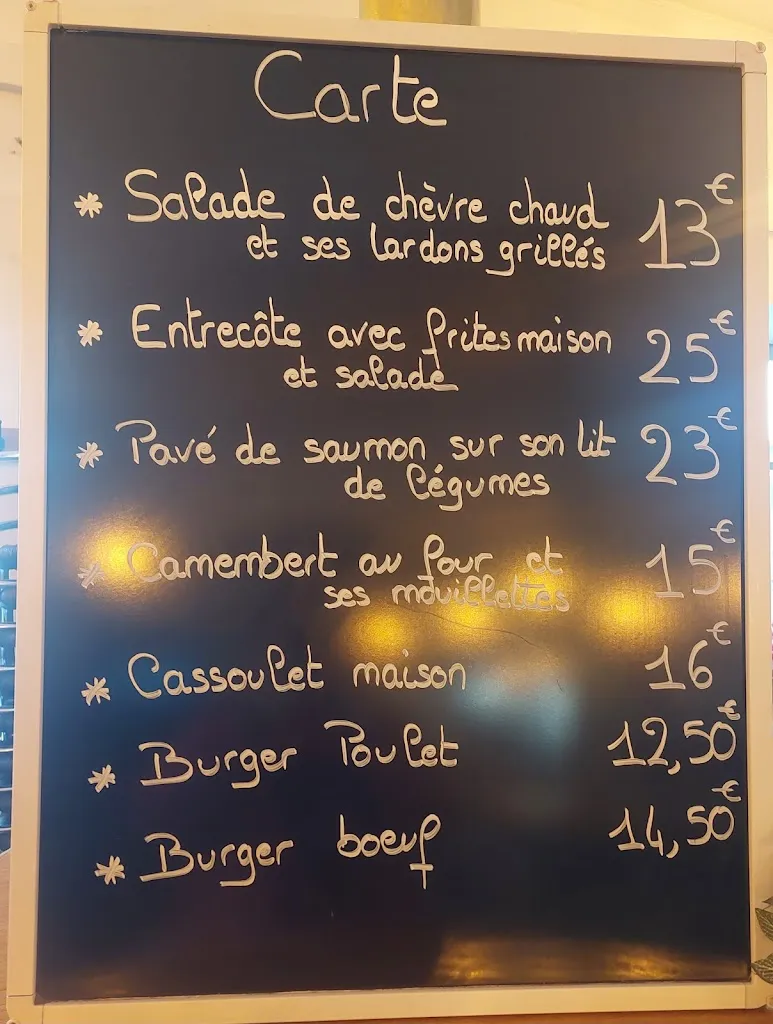 Carte
* Salade de chèvre chaud 13€
et ses lardons grillés
* Entrecôte avec frites maison 25€
et salade
* Pavé de saumon sur son lit 23€
de légumes
* Camembert au four et 15€
ses mouillettes
* Cassoulet maison 16€
* Burger Poulet 12,50€
* Burger boeuf 14,50€